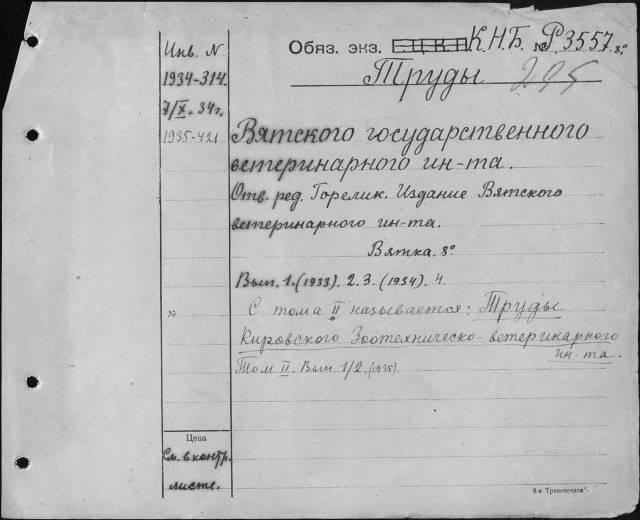 Инв. N
1934-314.
7/X. 34 г.
1935-421
Обяз. экз. Е.Ц.К.П К.Н.Б. № Р 3557. 8°
Труды 295
Вятского государственного
ветеринарного ин-та.
Отв. ред. Горелик. Издание Вятского
ветеринарного ин-та.
Вятка. 8°
Вып. 1. (1933). 2. 3. (1934). 4.
№
С тома II называется: Труды
Кировского Зоотехническо-ветеринарного
ин-та.
Том II. Вып 1/2. (1935).
Цена
См. в контр.
листе.
8-я Транспечати".